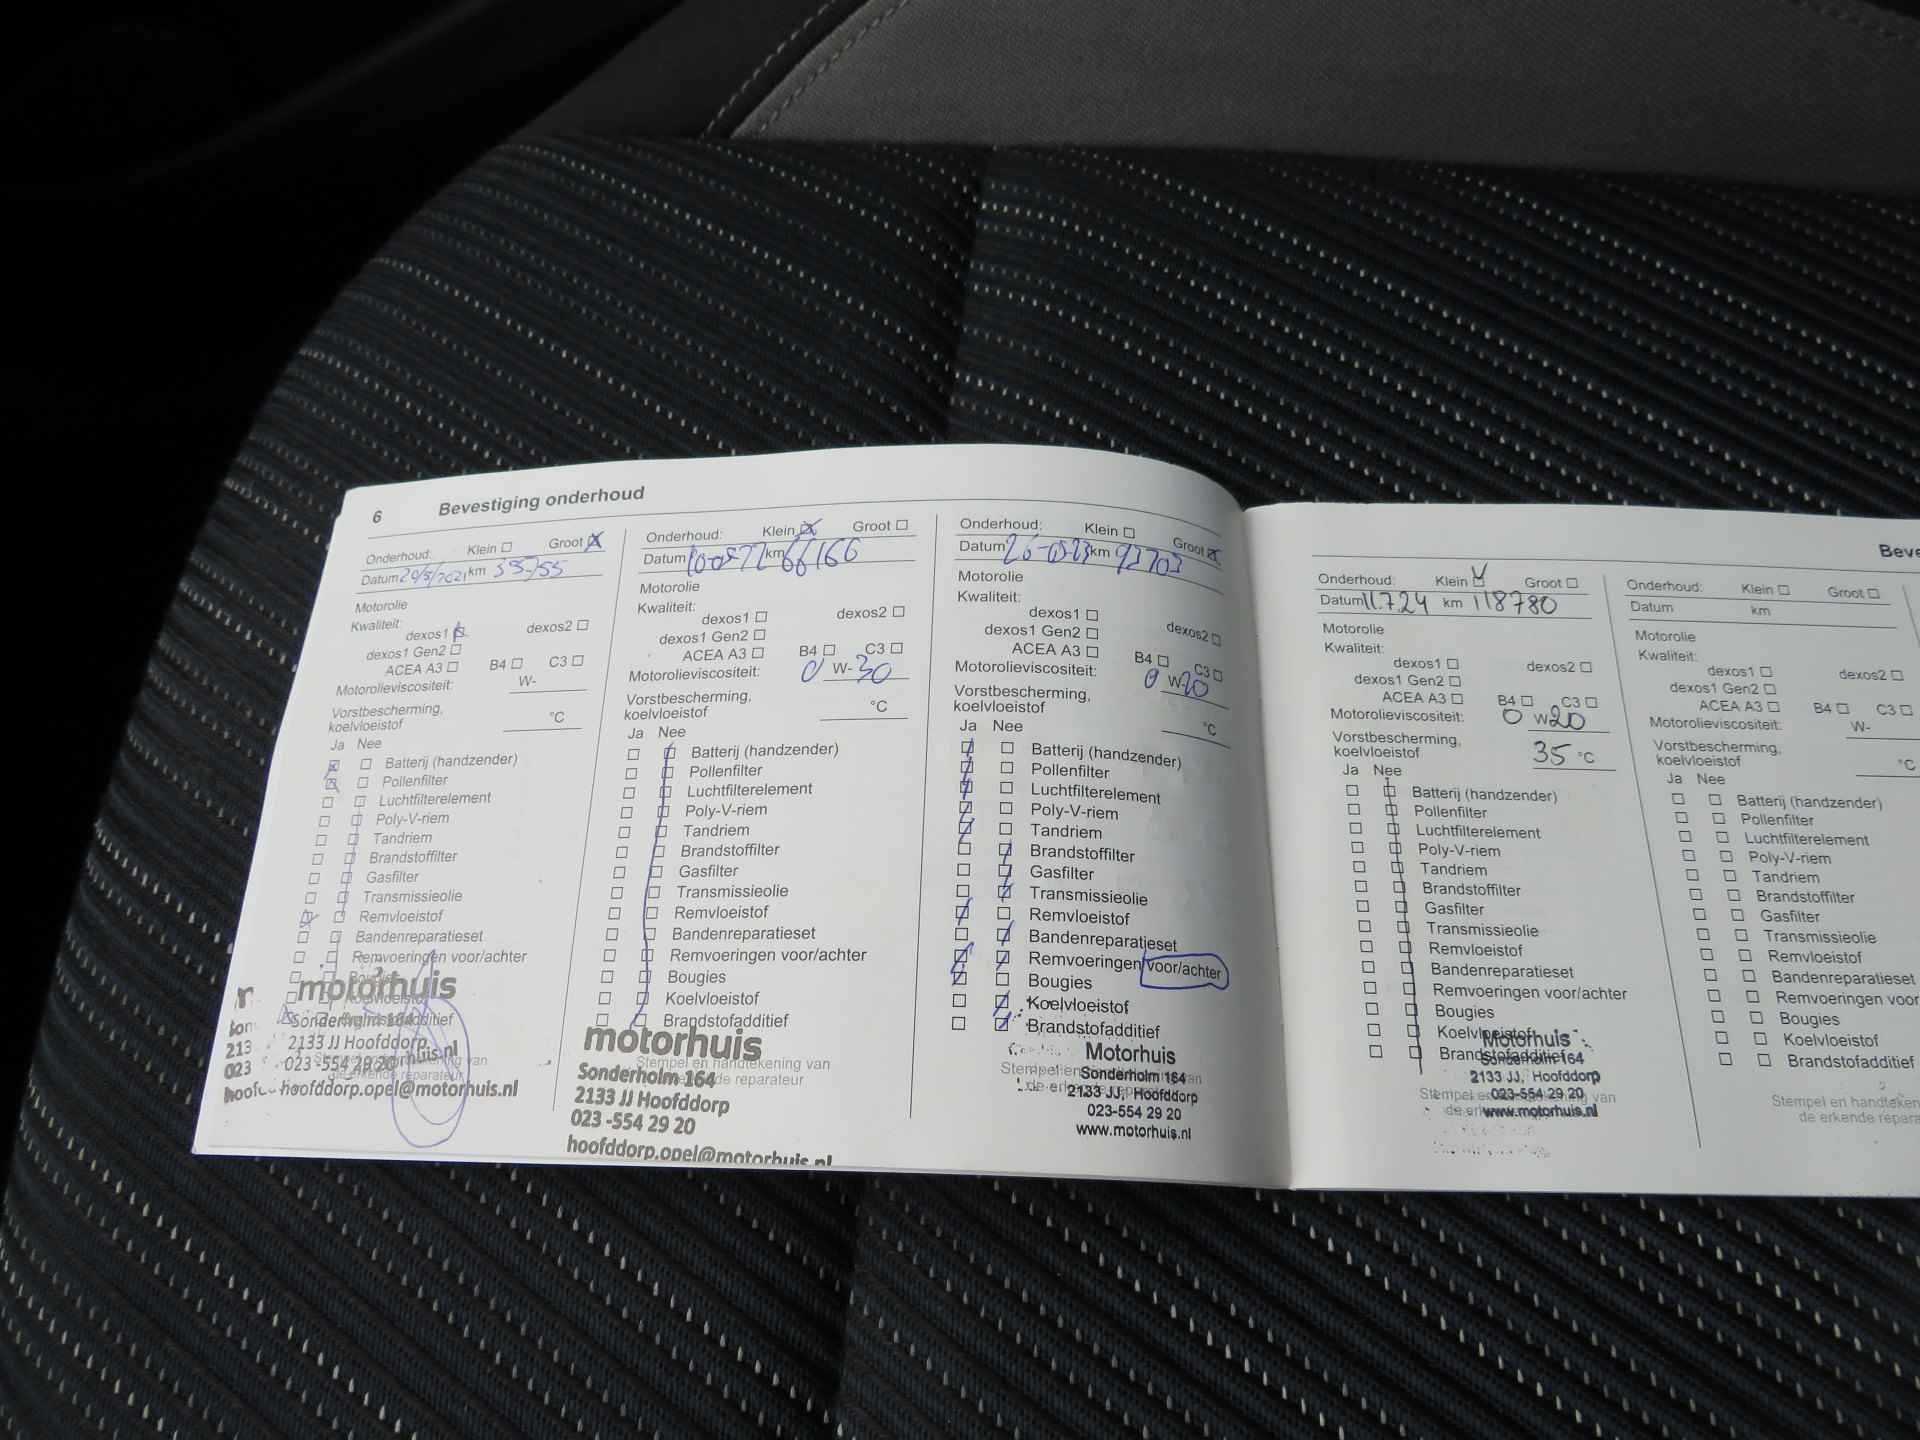 6 Bevestiging onderhoud
Onderhoud: Klein Groot
Datum 20/5/2021 km
Motorolie
Kwaliteit:
dexos1 dexos2
dexos1 Gen2
ACEA A3 B4 C3
Motorolieviscositeit: W-
Vorstbescherming,
koelvloeistof °C
Ja Nee
Batterij (handzender)
Pollenfilter
Luchtfilterelement
Poly-V-riem
Tandriem
Brandstoffilter
Gasfilter
Transmissieolie
Remvloeistof
Bandenreparatieset
Remvoeringen voor/achter
motorhuis
Sonderholm 164
2133 JJ Hoofddorp
023 -554 29 20
hoofddorp.opel@motorhuis.nl
Onderhoud: Klein Groot
Datum km 66166
Motorolie
Kwaliteit:
dexos1 dexos2
dexos1 Gen2
ACEA A3 B4 C3
Motorolieviscositeit: 0 W-30
Vorstbescherming,
koelvloeistof °C
Ja Nee
Batterij (handzender)
Pollenfilter
Luchtfilterelement
Poly-V-riem
Tandriem
Brandstoffilter
Gasfilter
Transmissieolie
Remvloeistof
Bandenreparatieset
Remvoeringen voor/achter
Bougies
Koelvloeistof
Brandstofadditief
motorhuis
Stempel en handtekening van
de erkende reparateur
Sonderholm 164
2133 JJ Hoofddorp
023 -554 29 20
hoofddorp.opel@motorhuis.nl
Onderhoud: Klein Groot
Datum km 93703
Motorolie
Kwaliteit:
dexos1 dexos2
dexos1 Gen2
ACEA A3 B4 C3
Motorolieviscositeit: 0 W-20
Vorstbescherming,
koelvloeistof °C
Ja Nee
Batterij (handzender)
Pollenfilter
Luchtfilterelement
Poly-V-riem
Tandriem
Brandstoffilter
Gasfilter
Transmissieolie
Remvloeistof
Bandenreparatieset
Remvoeringen voor/achter
Bougies
Koelvloeistof
Brandstofadditief
Motorhuis
Sonderholm 164
2133 JJ, Hoofddorp
023-554 29 20
www.motorhuis.nl
Beve
Onderhoud: Klein Groot
Datum 11.7.24 km 118780
Motorolie
Kwaliteit:
dexos1 dexos2
dexos1 Gen2
ACEA A3 B4 C3
Motorolieviscositeit: 0 W-20
Vorstbescherming,
koelvloeistof 35 °C
Ja Nee
Batterij (handzender)
Pollenfilter
Luchtfilterelement
Poly-V-riem
Tandriem
Brandstoffilter
Gasfilter
Transmissieolie
Remvloeistof
Bandenreparatieset
Remvoeringen voor/achter
Bougies
Koelvloeistof
Brandstofadditief
Motorhuis
Sonderholm 164
2133 JJ, Hoofddorp
023-554 29 20
www.motorhuis.nl
Onderhoud: Klein Groot
Datum km
Motorolie
Kwaliteit:
dexos1 dexos2
dexos1 Gen2
ACEA A3 B4 C3
Motorolieviscositeit: W-
Vorstbescherming,
koelvloeistof °C
Ja Nee
Batterij (handzender)
Pollenfilter
Luchtfilterelement
Poly-V-riem
Tandriem
Brandstoffilter
Gasfilter
Transmissieolie
Remvloeistof
Bandenreparatieset
Remvoeringen voor
Bougies
Koelvloeistof
Brandstofadditief
Stempel en handteken
de erkende repara